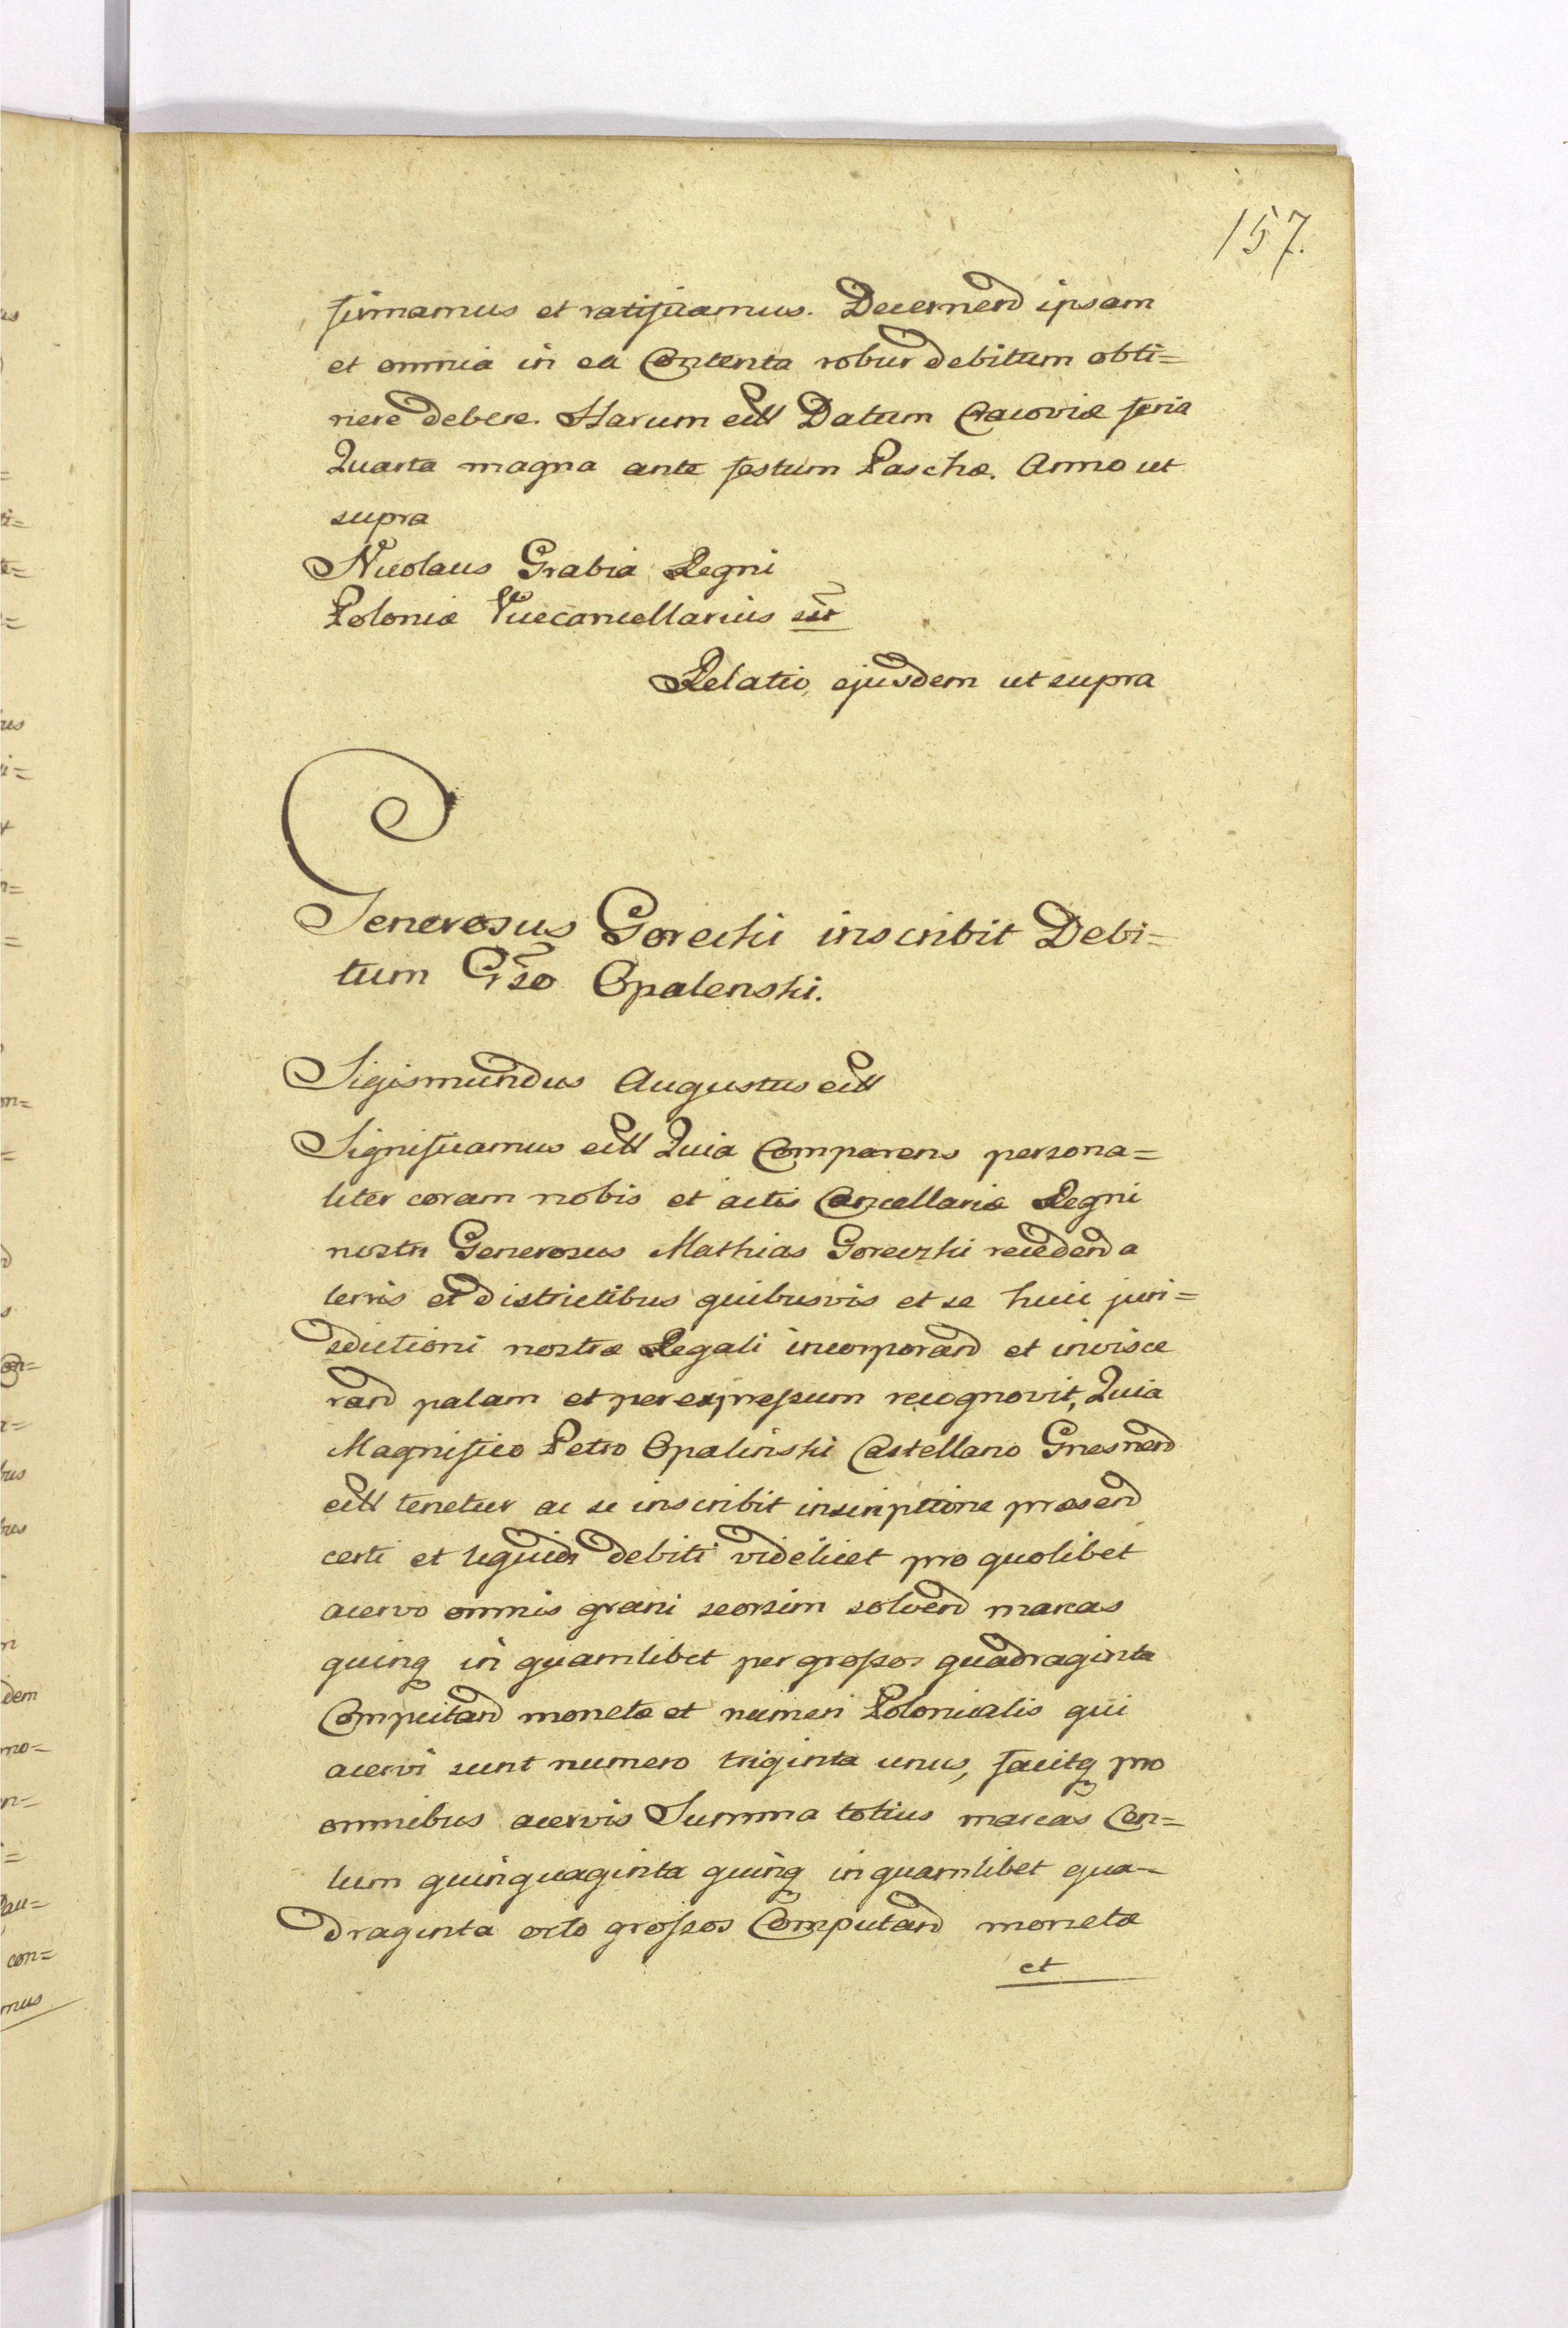 157.
firmamus et ratificamus. Decernend ipsam
et omnia in ea Contenta robur debitum obti=
nere debere. Harum ett Datum Cracoviæ feria
Quarta magna ante festum Paschæ. Anno ut
supra
Nicolaus Grabia Regni
Poloniæ Vicecancellarius sst
Relatio ejusdem ut supra
Generosus Gorecki inscribit Debi=
tum Gso Opalenski.
Sigismundus Augustus ett
Significamus ett Quia Comparens persona=
liter coram nobis et actis Cancellariæ Regni
nostri Generosus Mathias Goreczki recedend a
terris et districtibus quibusvis et se huic juri=
sdictioni nostræ Regali incorporand et invisce
rand palam et per expressum recognovit, Quia
Magnifico Petro Opalinski Castellano Gnesnend
ett tenetur ac se inscribit inscriptione præsend
certi et liquidi debiti videlicet pro quolibet
acervo omnis grani seorsim solvend marcas
quinq in quamlibet per grossos quadraginta
Computand monetæ et numeri Polonicalis qui
acervi sunt numero triginta unus, facitq pro
omnibus acervis Summa totius marcas Cen=
tum quinquaginta quinq in quamlibet qua=
draginta octo grossos Computand monetæ
et